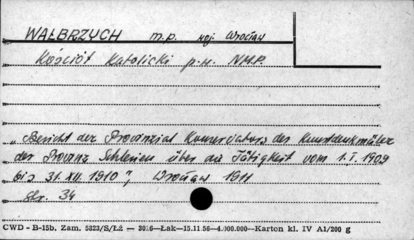 WAŁBRZYCH m.p. woj. Wrocław
Kościół Katolicki p.w. NMP.
„Bericht der Provinzial Konservators der Kunstdenkmäler
der Provinz Schlesien über die Tätigkeit vom 1.I.1909
bis 31.XII.1910", Wrocław 1911
Str. 34
CWD - B-15b. Zam. 5823/S/Łż — 3026—Łak—15.11.56—4.000.000—Karton kl. IV A1/200 g